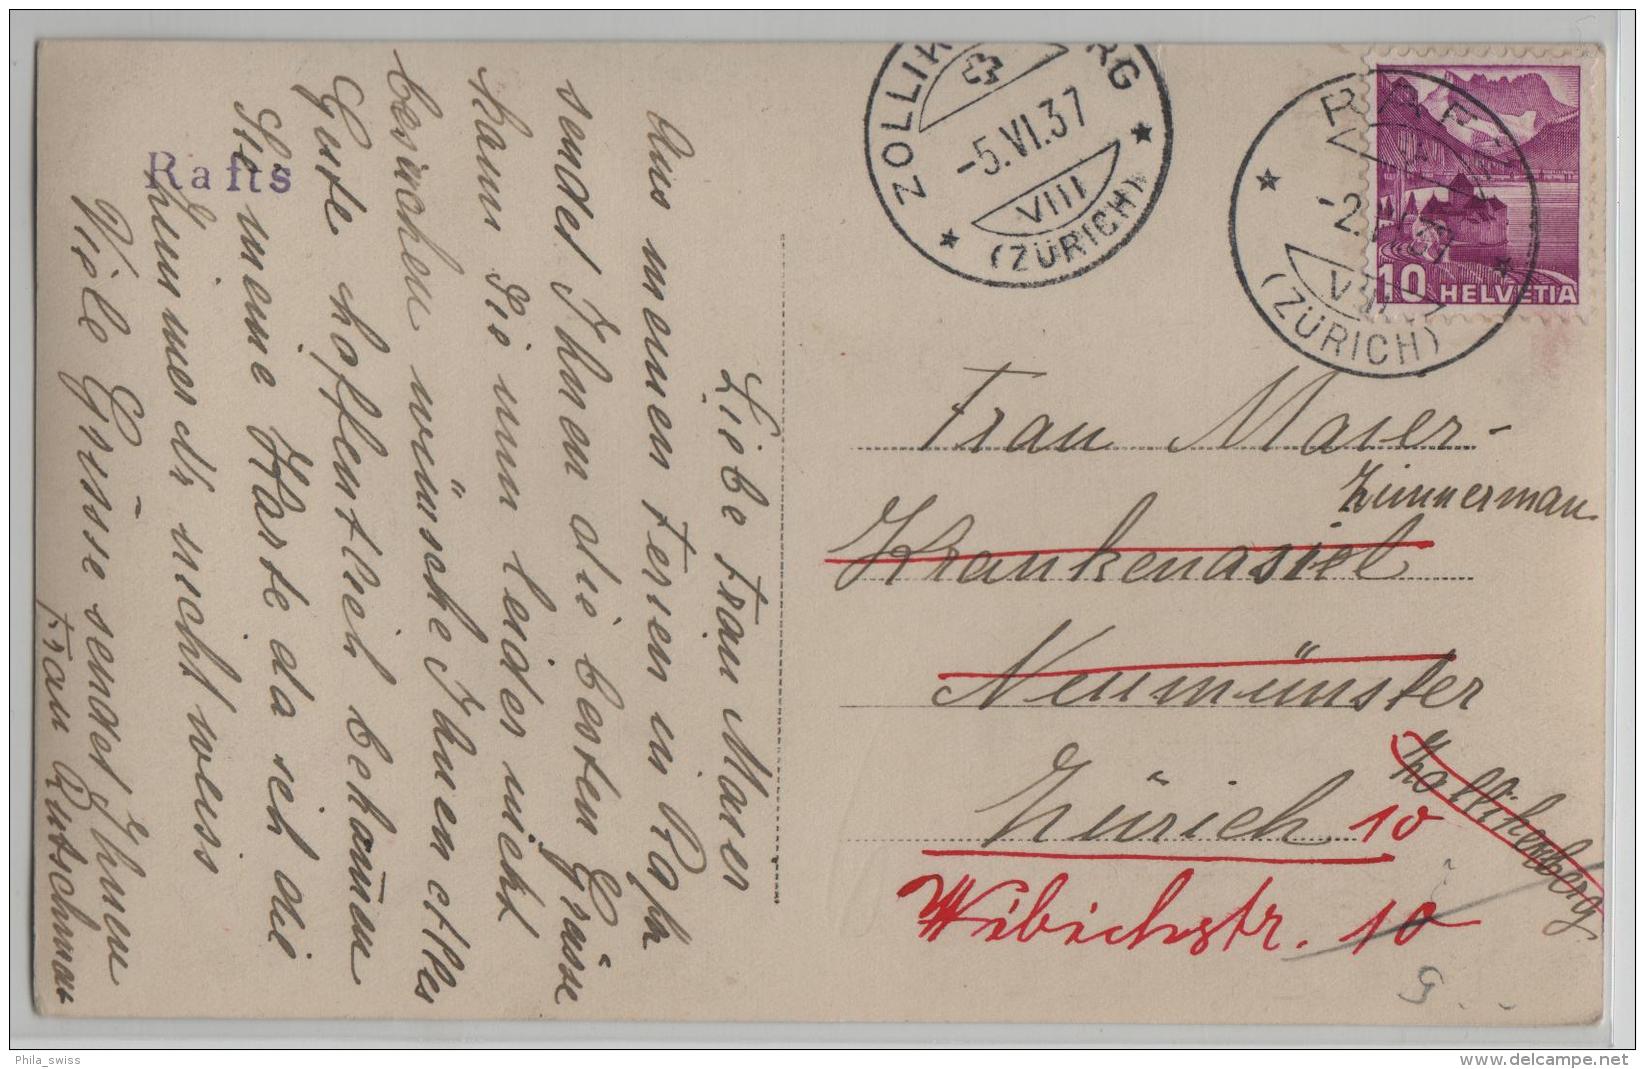 Liebe Frau Maier
Aus meinen Ferien in Rafz
sendet Ihnen die besten Grüsse
kann Sie nun leider nicht
besuchen wünsche Ihnen alles
Gute hoffentlich bekomen
Sie meine Karte da ich die
Nummer nicht weiss
Viele Grüsse sendet Ihnen
Frau Rutschman
Rafts
ZOLLIK RG
-5.VI.37
VIII
(ZÜRICH)
RAFZ
-2.VI.37
(ZÜRICH)
10 HELVETIA
Frau Maier-
Zimmerman
Krankenasiel
Neumünster
Zollikerberg
Zürich 10
Wibichstr. 10
Phila_swiss
www.delcampe.net